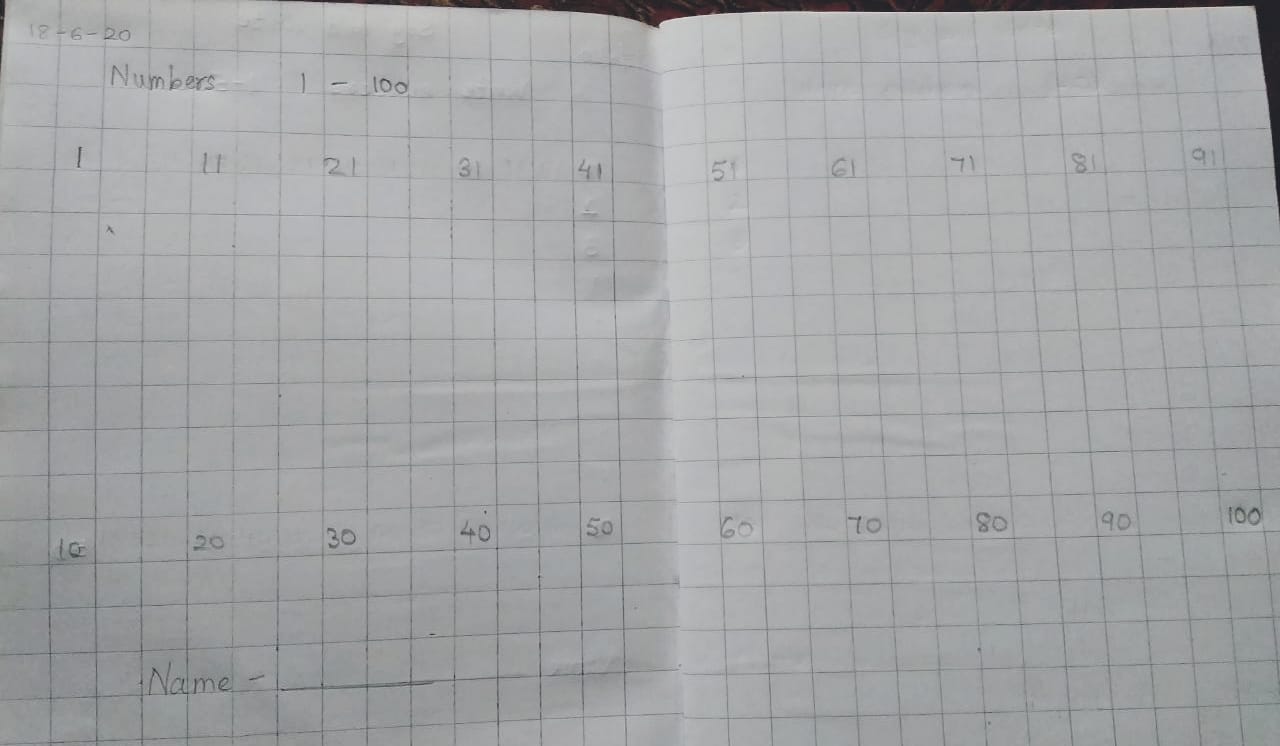 18-6-20
Numbers 1 - 100
1 11 21 31 41 51 61 71 81 91
10 20 30 40 50 60 70 80 90 100
Name -